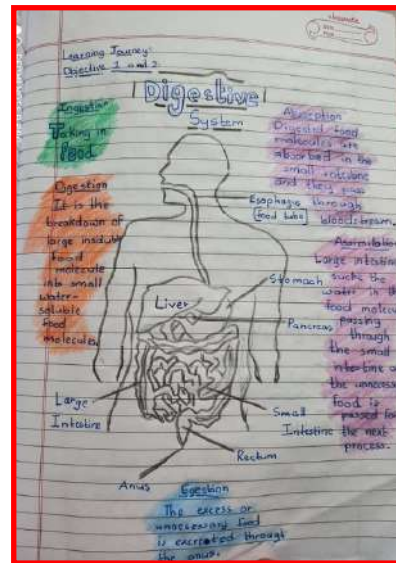 Learning Journey:
Objective 1 and 2
Digestive
System
Ingestion
Taking in
food
Digestion
It is the
breakdown of
large
food
molecule
into small
water-
soluble
food
molecules
Absorption
Digested food
molecules are
absorbed in the
small intestine
and they pass
through
bloodstream.
Assimilation
Large intestine
sucks the
water in the
food molecule
passing
through
the small
intestine
the
food is
passed for
the next
process.
Esophagus
food tube
Liver
Stomach
Pancreas
Large
Intestine
Small
Intestine
Rectum
Anus
Egestion
The excess or
unnecessary food
is excreated through
the anus.